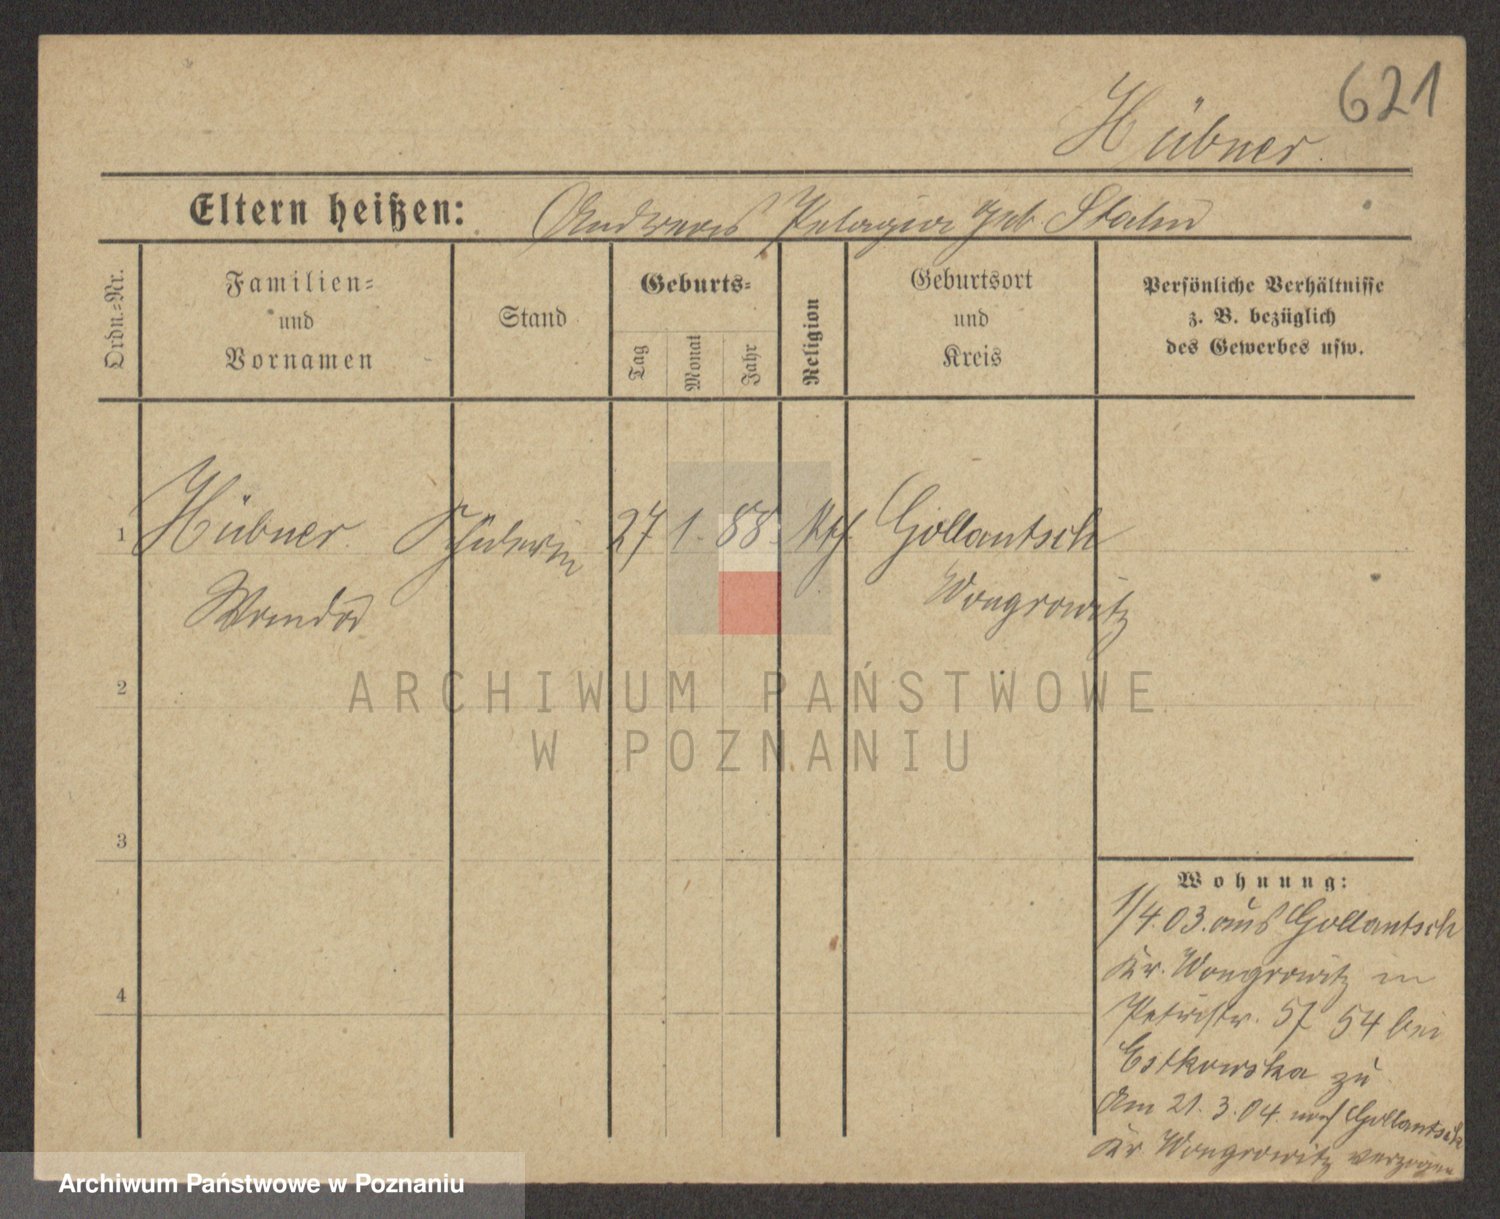 621
Hübner.
Eltern heißen: Andreas Pelagia geb. Stalm
Ordn.-Nr.
Familien-
und
Vornamen
Stand
Geburts-
Tag
Monat
Jahr
Religion
Geburtsort
und
Kreis
Persönliche Verhältnisse
z. B. bezüglich
des Gewerbes usw.
1 Hübner. Schülerin 27 1. 88. kth. Gollantsch
Wanda Wongrowitz
2
3
4
ARCHIWUM PAŃSTWOWE
W POZNANIU
Wohnung:
1/4.03. aus Gollantsch
Kr. Wongrowitz in
Petristr. 5I 54 bei
Estkowska zu
Am 21.3.04. nach Gollantsch
Kr. Wongrowitz verzogen
Archiwum Państwowe w Poznaniu